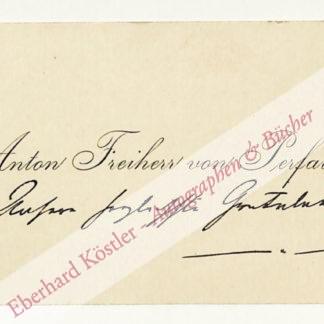 Anton Freiherr von Perfal
Unsere herzlichste Gratula
Eberhard Köstler - Autographen & Bücher